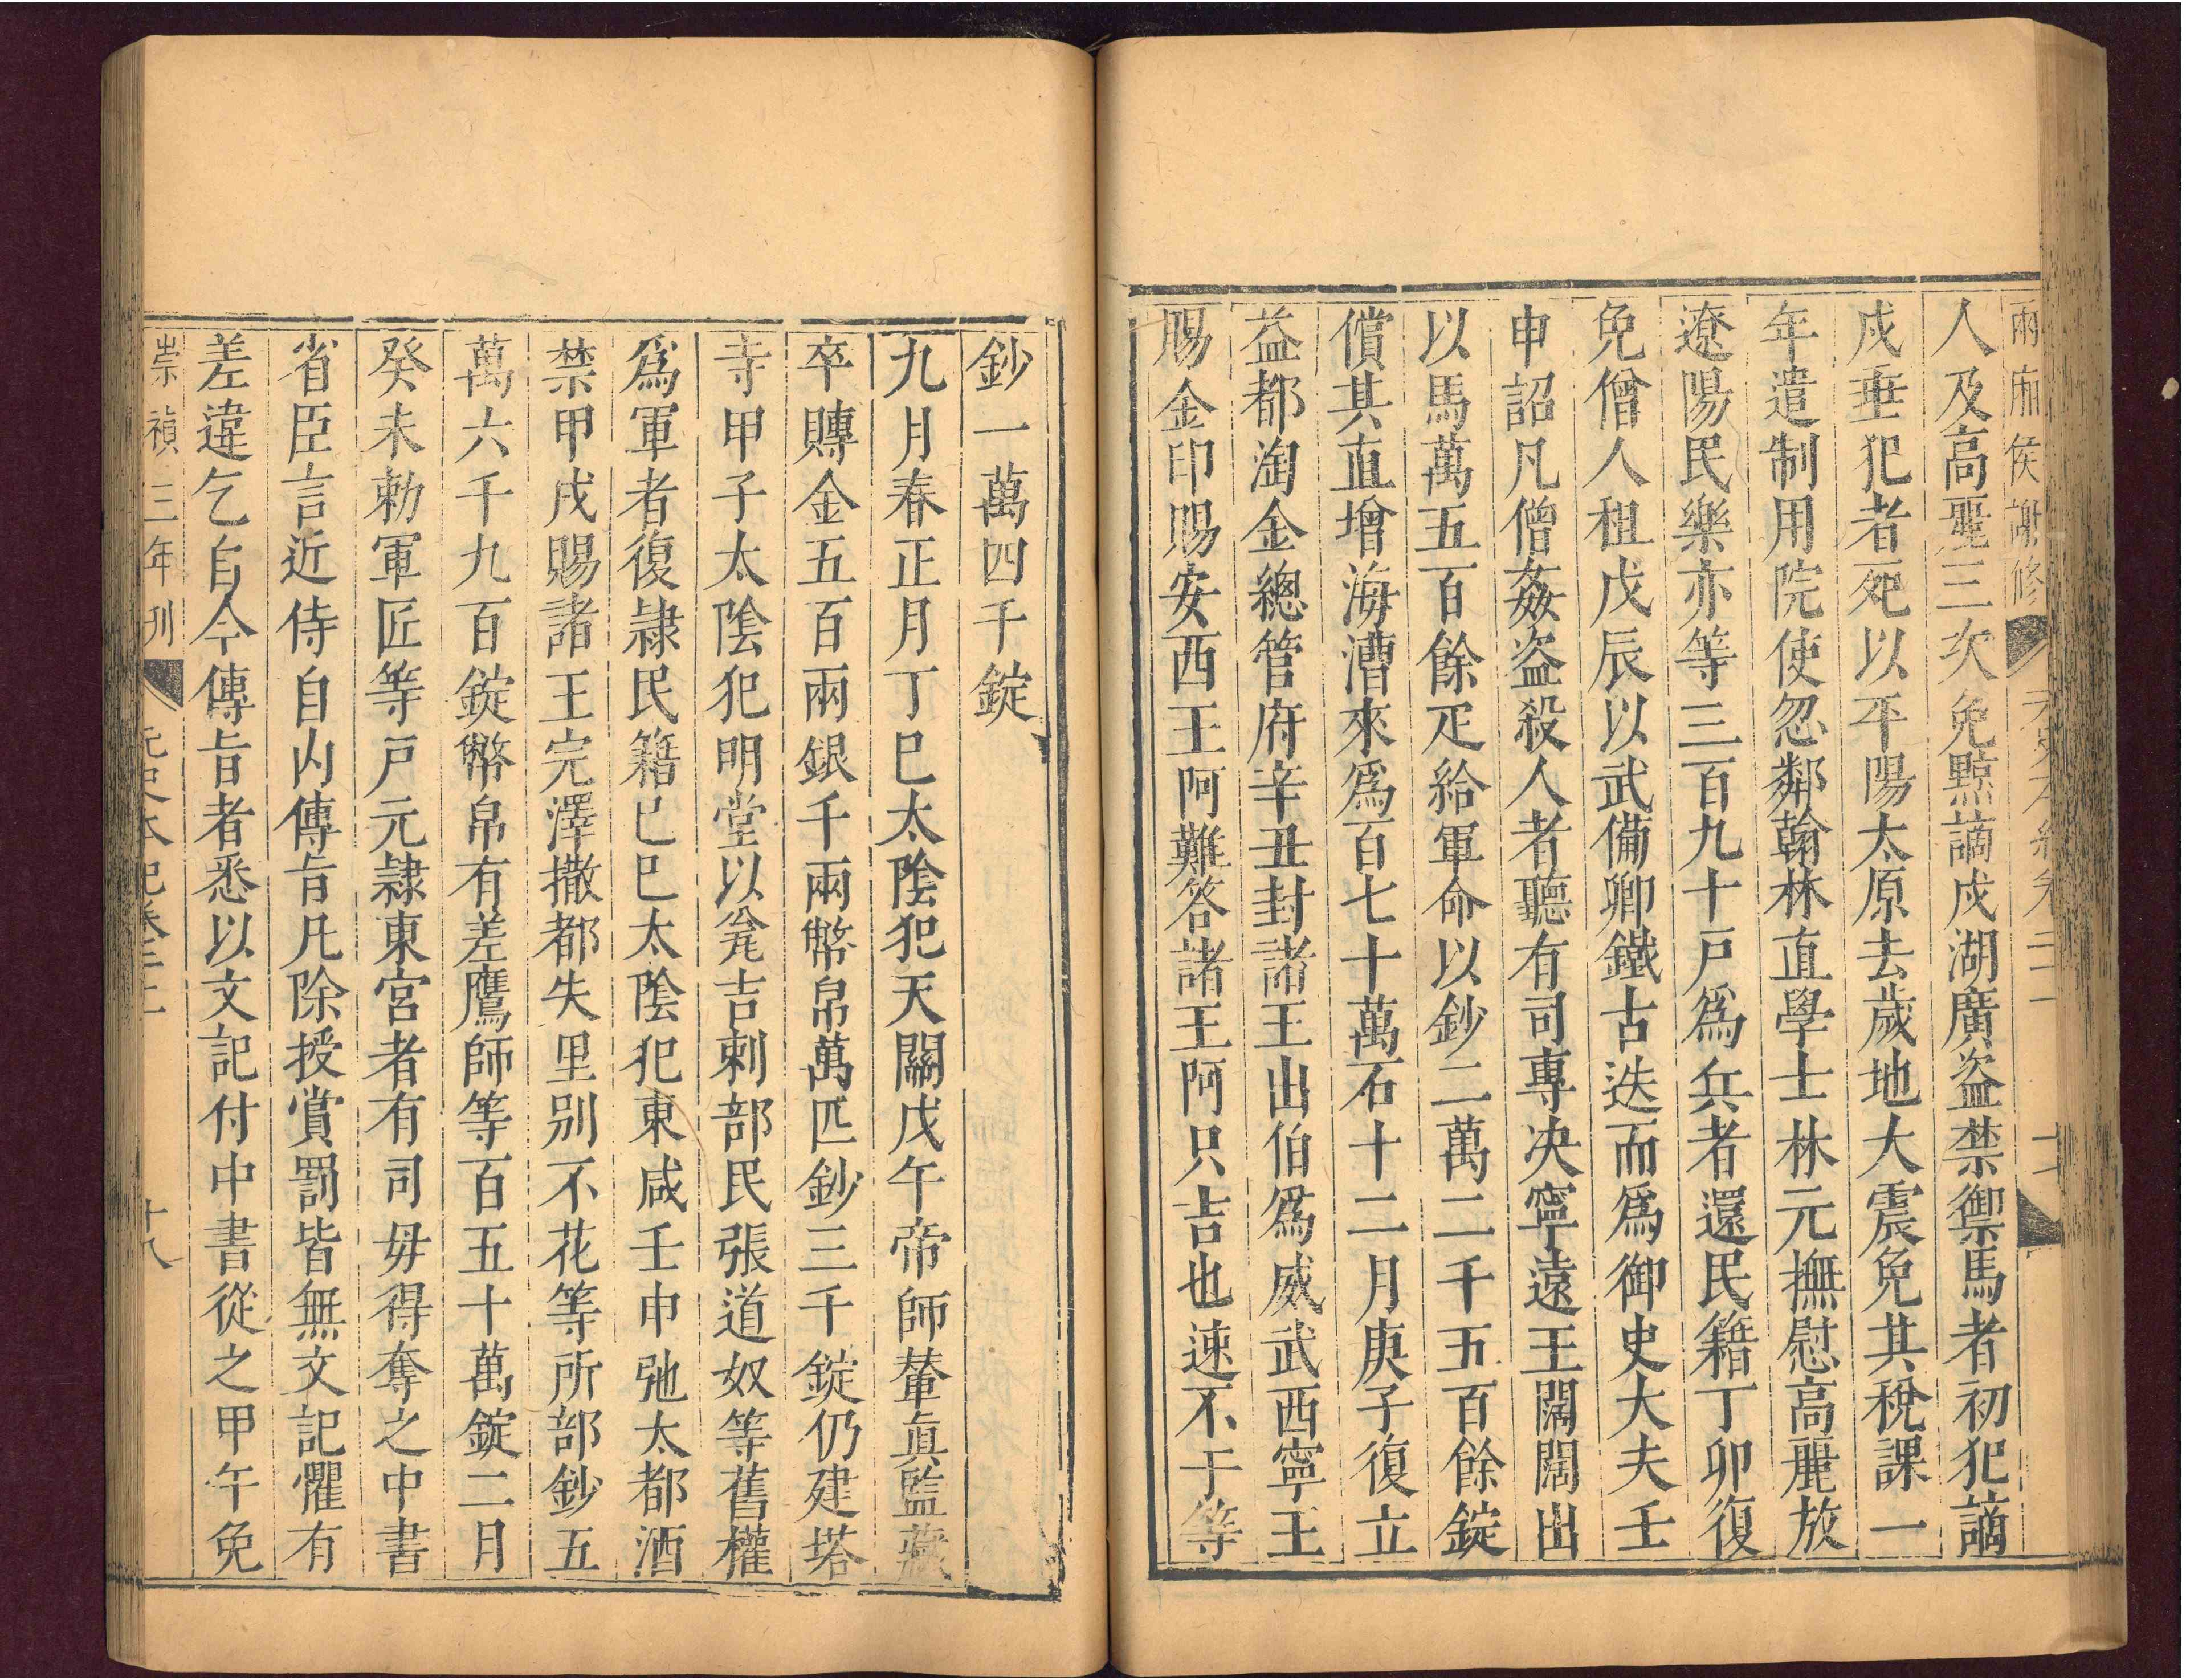 兩廂侯謝修
人及高麗三次免黥謫戍湖廣盜禁禦馬者初犯謫
戍重犯者死以平陽太原去歲地大震免其稅課一
年遣制用院使忽鄰翰林直學士林元撫慰高麗放
遼陽民樂亦等三百九十戶爲兵者還民籍丁卯復
免僧人租戊辰以武備卿鐵古迭而爲御史大夫壬
申詔凡僧姦盜殺人者聽有司專决寧遠王闊闊出
以馬萬五百餘疋給軍命以鈔二萬二千五百餘錠
償其直增海漕來爲百七十萬石十二月庚子復立
益都淘金總管府辛丑封諸王出伯爲威武西寧王
賜金印賜安西王阿難答諸王阿只吉也速不干等
鈔一萬四千錠
九月春正月丁巳太陰犯天關戊午帝師輦真監藏
卒賻金五百兩銀千兩幣帛萬匹鈔三千錠仍建塔
寺甲子太陰犯明堂以瓮吉剌部民張道奴等舊權
爲軍者復隷民籍己巳太陰犯東咸壬申弛太都酒
禁甲戌賜諸王完澤撒都失里別不花等所部鈔五
萬六千九百錠幣帛有差鷹師等百五十萬錠二月
癸未勅軍匠等戶元隷東宮者有司毋得奪之中書
省臣言近侍自內傳旨凡除授賞罰皆無文記懼有
差違乞自今傳旨者悉以文記付中書從之甲午免
崇禎三年刊 元史本紀卷二十一 十八